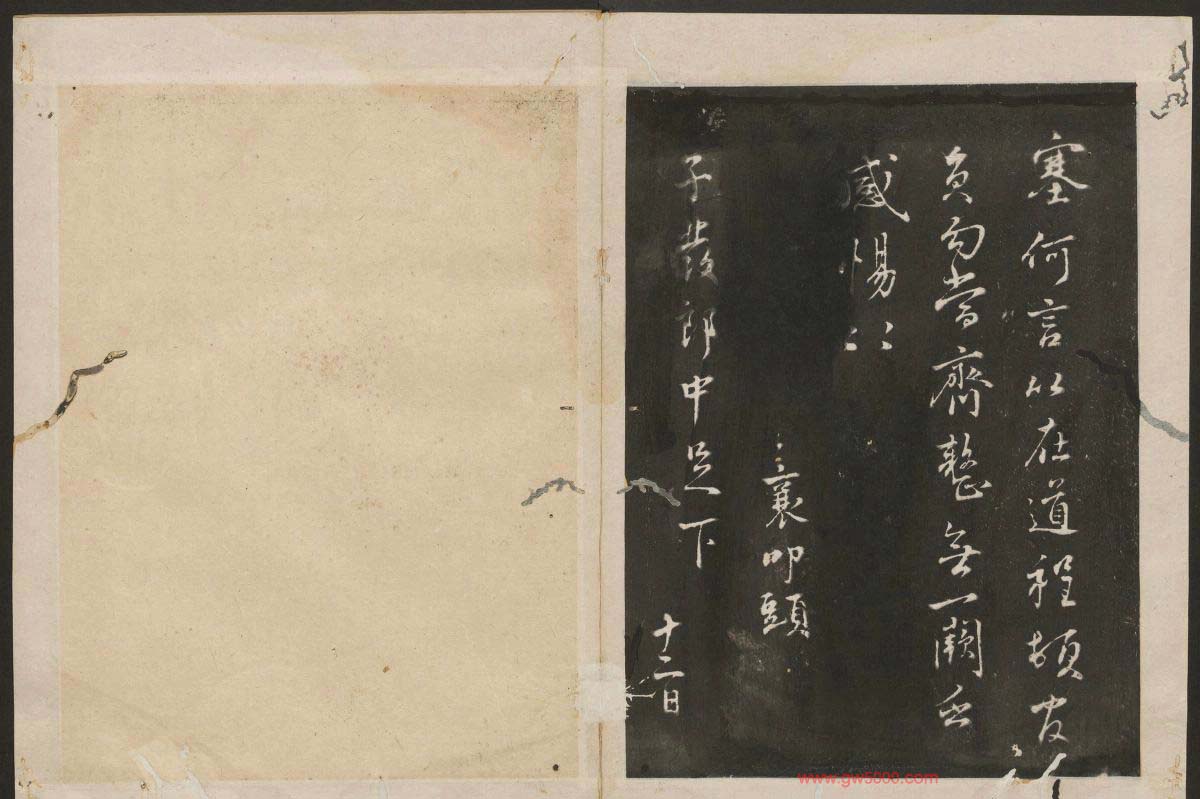 塞何言在道程頓官
員勾當齊整無一闕乏
感惕
襄叩頭
子發郎中足下
十二日
www.gw5000.com